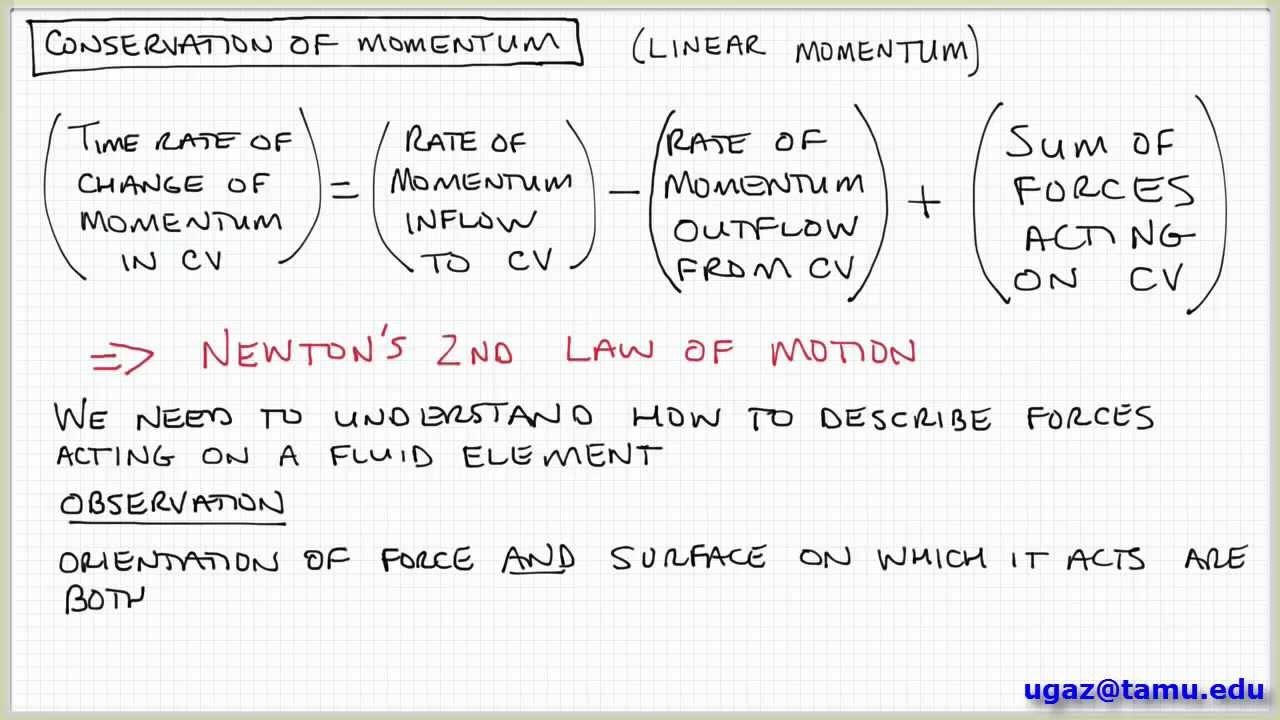 CONSERVATION OF MOMENTUM (LINEAR MOMENTUM)
(TIME RATE OF CHANGE OF MOMENTUM IN CV) = (RATE OF MOMENTUM INFLOW TO CV) − (RATE OF MOMENTUM OUTFLOW FROM CV) + (SUM OF FORCES ACTING ON CV)
=> NEWTON'S 2ND LAW OF MOTION
WE NEED TO UNDERSTAND HOW TO DESCRIBE FORCES
ACTING ON A FLUID ELEMENT
OBSERVATION
ORIENTATION OF FORCE AND SURFACE ON WHICH IT ACTS ARE
BOTH
ugaz@tamu.edu